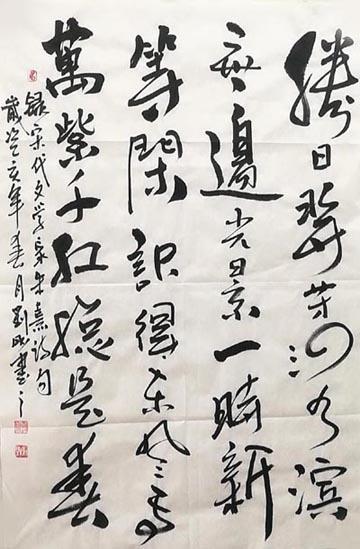 勝日尋芳泗水滨
無邊光景一時新
等閑識得東風面
萬紫千紅總是春
録宋代文学家朱熹詩句
歲次己亥年春月劉書之